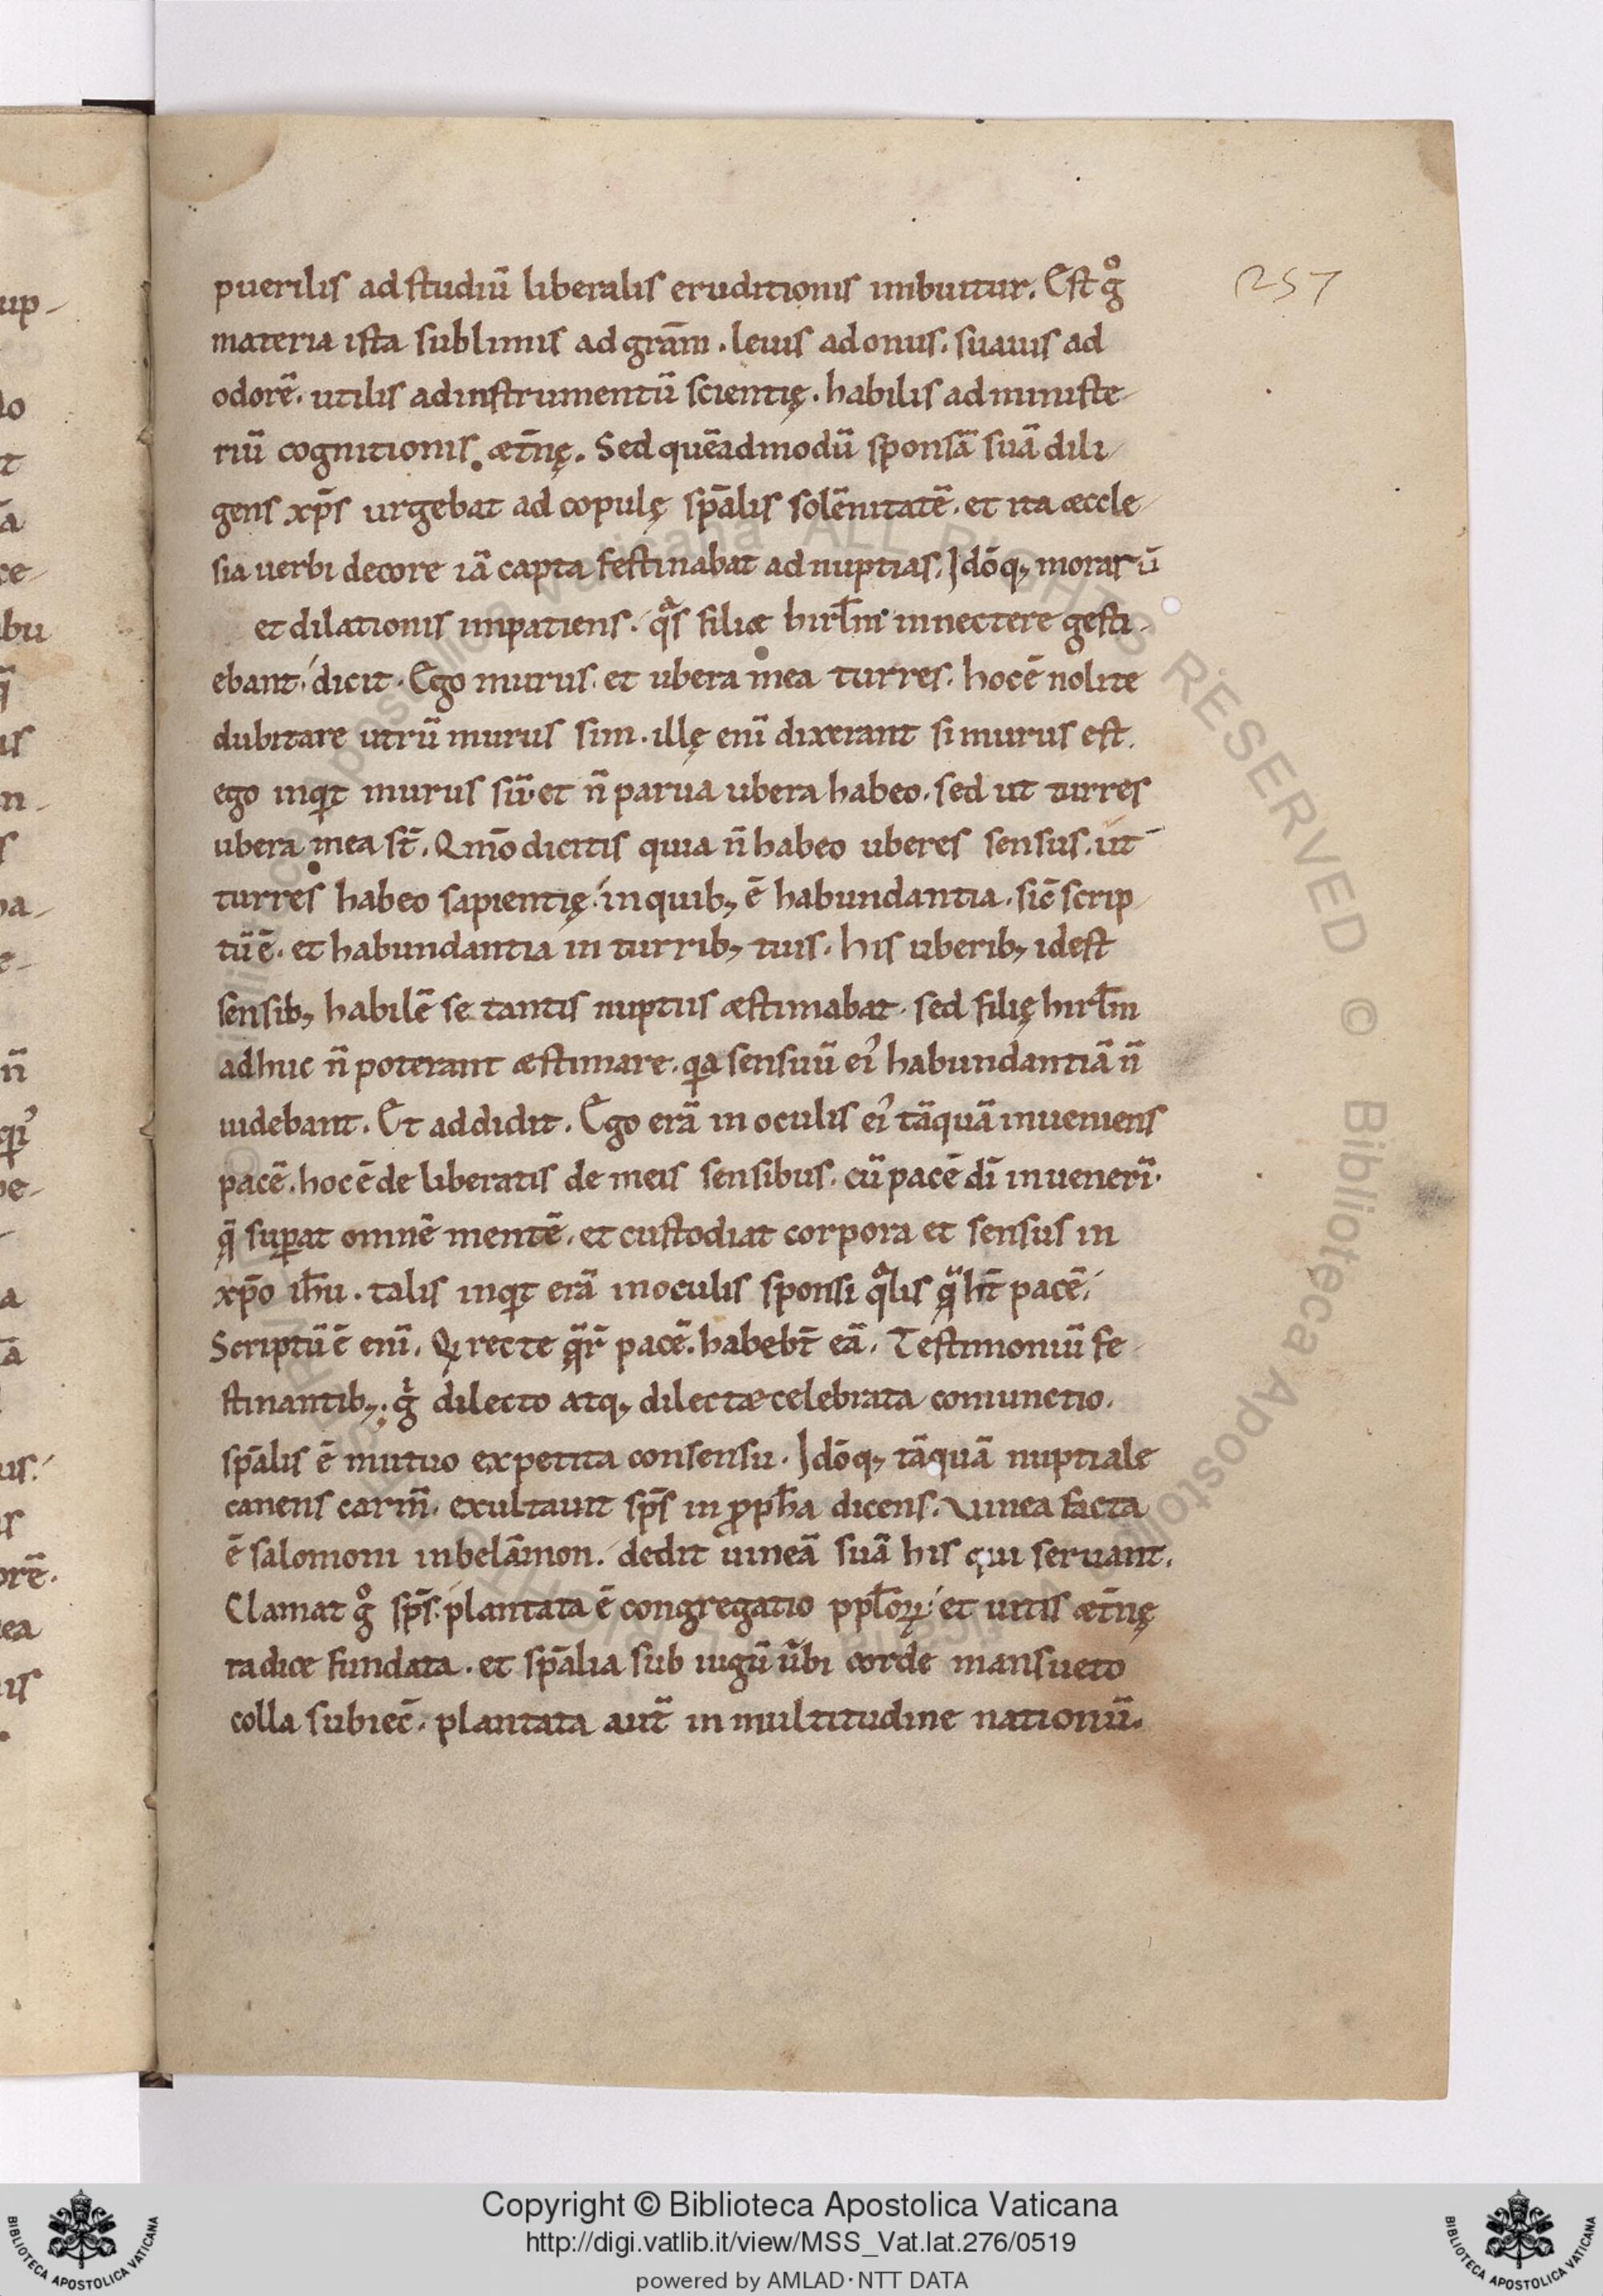 puerilis ad studiū liberalis eruditionis imbuitur. Est gͦ
257
materia ista sublimis ad grām. leuis ad onus. suauis ad
odorē. utilis ad instrumentū scientię. habilis ad ministe-
riū cognitionis ætn̄ę. Sed quēadmodū sponsā suā dili-
gens xp̄s urgebat ad copulę sp̄alis solēnitatē. et ita æccle-
sia uerbi decore iā capta festinabat ad nuptias. Idōq; morarū
et dilationis impatiens. qͣs filiæ hirl̄m innectere gesti-
ebant. dicit. Ego murus. et ubera mea turres. hoc ē nolite
dubitare utrū murus sim. illę enī dixerant si murus est.
ego inqͥt murus sū. et n̄ parua ubera habeo. sed ut turres
ubera mea st̄. Qm̄o dicitis quia n̄ habeo uberes sensus. ut
turres habeo sapientię. in quib; ē habundantia. sic̄ scrip-
tū ē. et habundantia in turrib; tuis. his uberib; id est
sensib; habilē se tantis nuptiis æstimabat. sed filię hirl̄m
adhuc n̄ poterant æstimare. qͥa sensuū eiꝰ habundantiā n̄
uidebant. Et addidit. Ego erā in oculis eiꝰ tāquā inueniens
pacē. hoc ē de liberatis de meis sensibus. cū pacē dī inuenerī.
q̄ suꝑat omnē mentē. et custodiat corpora et sensus in
xp̄o ih̄u. talis inqͥt erā in oculis sponsi qͣlis q̄ ht̄ pacē.
Scriptū ē enī. Qͥ recte qͣ̄r pacē. habebt̄ eā. Testimoniū fe-
stinantib;. gͥ dilecto atq; dilectæ celebrata coniunctio.
sp̄alis ē mutuo expetita consensu. Idōq; tāquā nuptiale
canens carm̄. exultauit sp̄s in ꝓph̄a dicens. Vinea facta
ē salomoni in belāmon. dedit uineā suā his qui seruant.
Clamat gͦ sp̄s. plantata ē congregatio ppl̄oꝝ. et uitis ætn̄ę
radice fundata. et sp̄alia sub iugū u̅bi corde mansueto
colla subiec̄. plantata aut̄ in multitudine nationū.
Copyright © Biblioteca Apostolica Vaticana
http://digi.vatlib.it/view/MSS_Vat.lat.276/0519
powered by AMLAD·NTT DATA